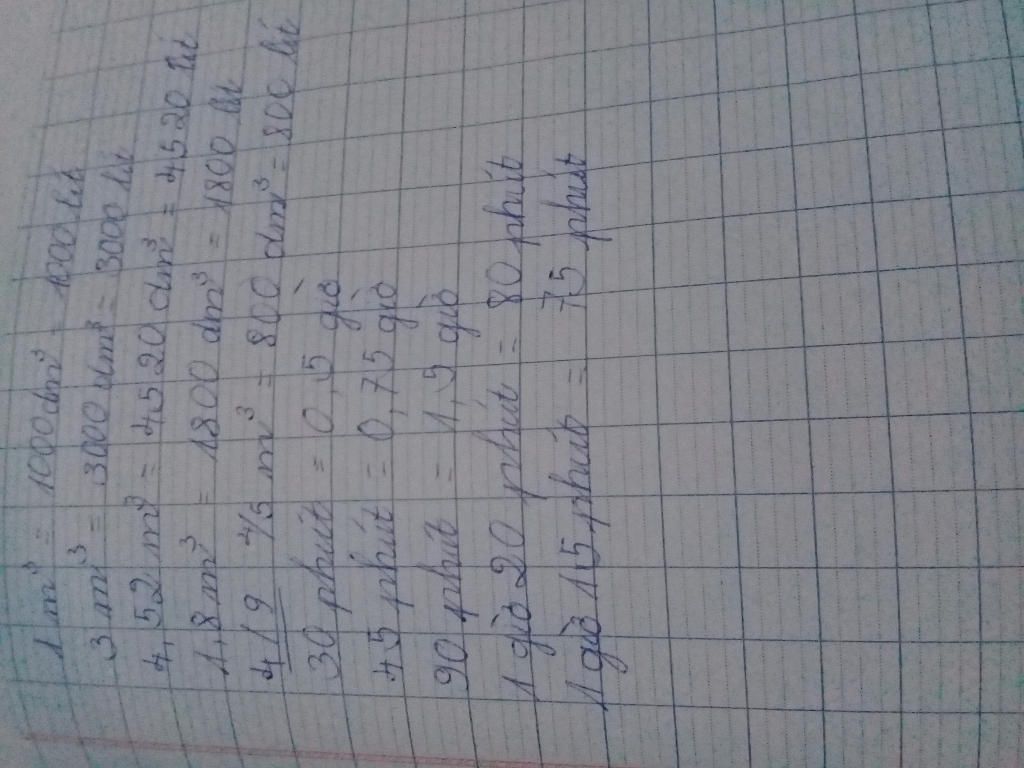 1 m³ = 1000 dm³ = 1000 lít
3 m³ = 3000 dm³ = 3000 lít
4,52 m³ = 4520 dm³ = 4520 lít
1,8 m³ = 1800 dm³ = 1800 lít
419 4/5 m³ = 800 dm³ = 800 lít
30 phút = 0,5 giờ
45 phút = 0,75 giờ
90 phút = 1,5 giờ
1 giờ 20 phút = 80 phút
1 giờ 15 phút = 75 phút